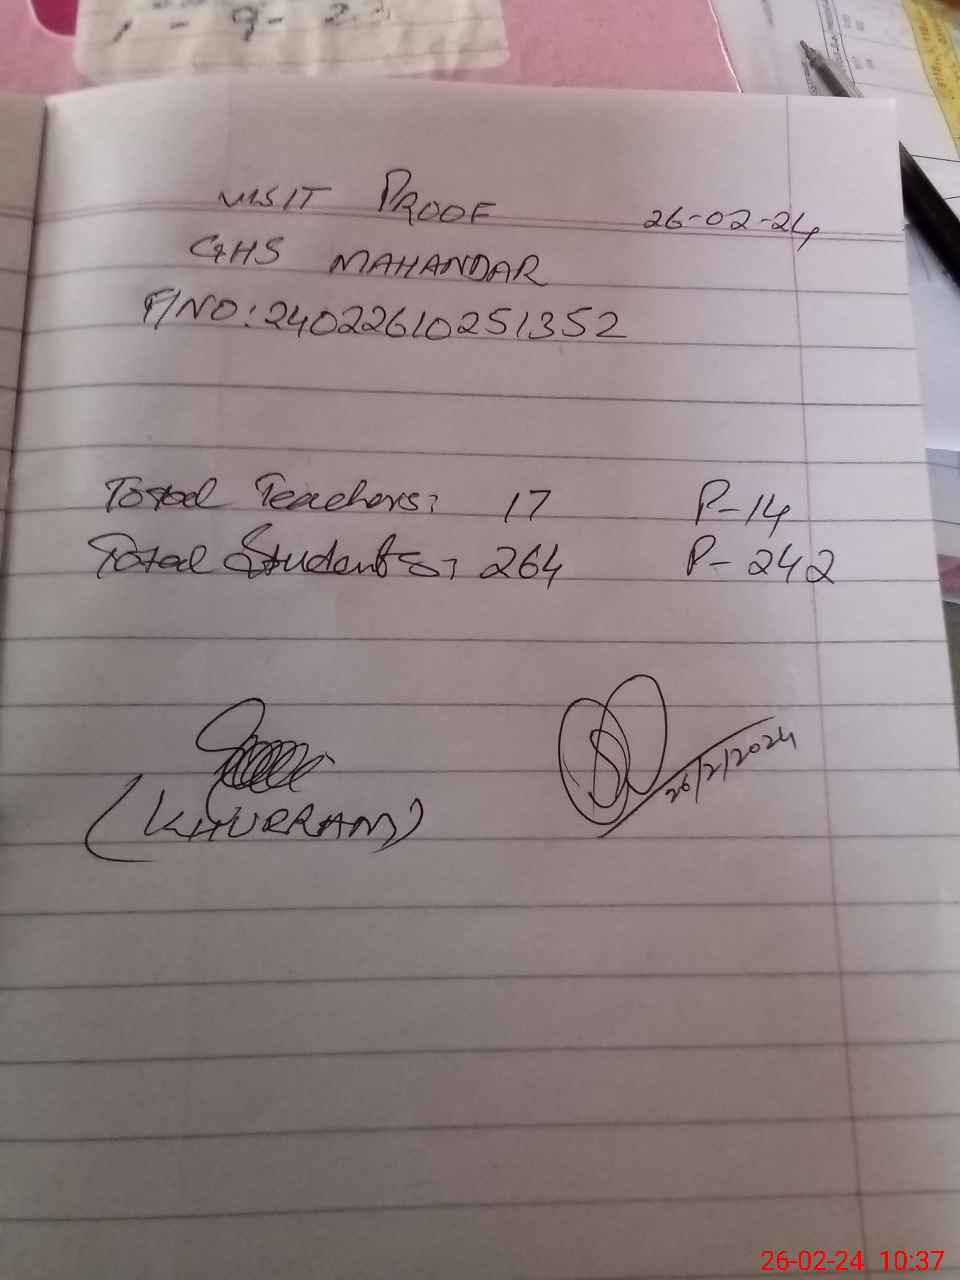 VISIT PROOF 26-02-24
GHS MAHANDAR
F/NO: 24022610251352
Total Teachers: 17 P-14
Total Students: 264 P-242
26/2/2024
(KHURRAM)
26-02-24 10:37